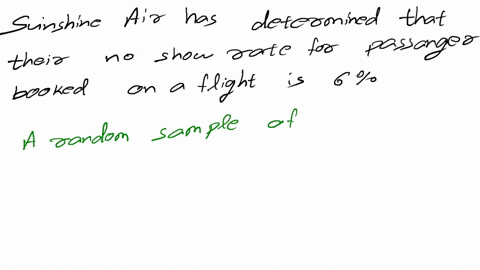 Sunshine Air has determined that
their no show rate for passanger
booked on a flight is 6%
A random sample of